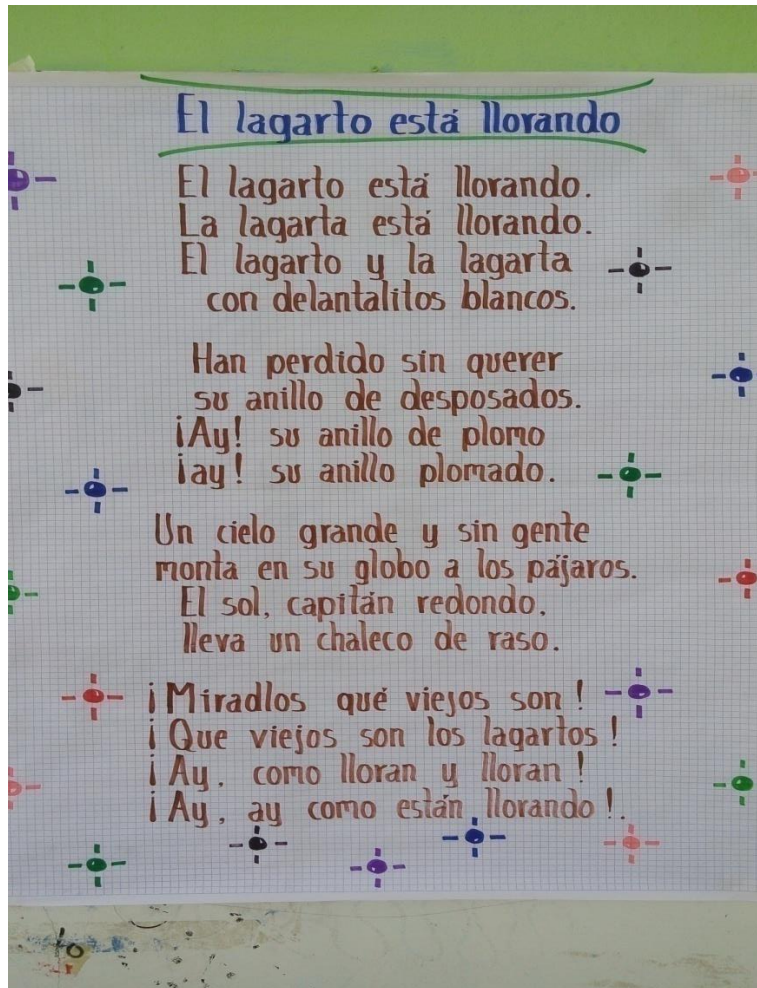 El lagarto está llorando
El lagarto está llorando.
La lagarta está llorando.
El lagarto y la lagarta
con delantalitos blancos.
Han perdido sin querer
su anillo de desposados.
¡Ay! su anillo de plomo
¡ay! su anillo plomado.
Un cielo grande y sin gente
monta en su globo a los pájaros.
El sol, capitán redondo,
lleva un chaleco de raso.
¡Miradlos qué viejos son!
¡Que viejos son los lagartos!
¡Ay, como lloran y lloran!
¡Ay, ay como están llorando!.